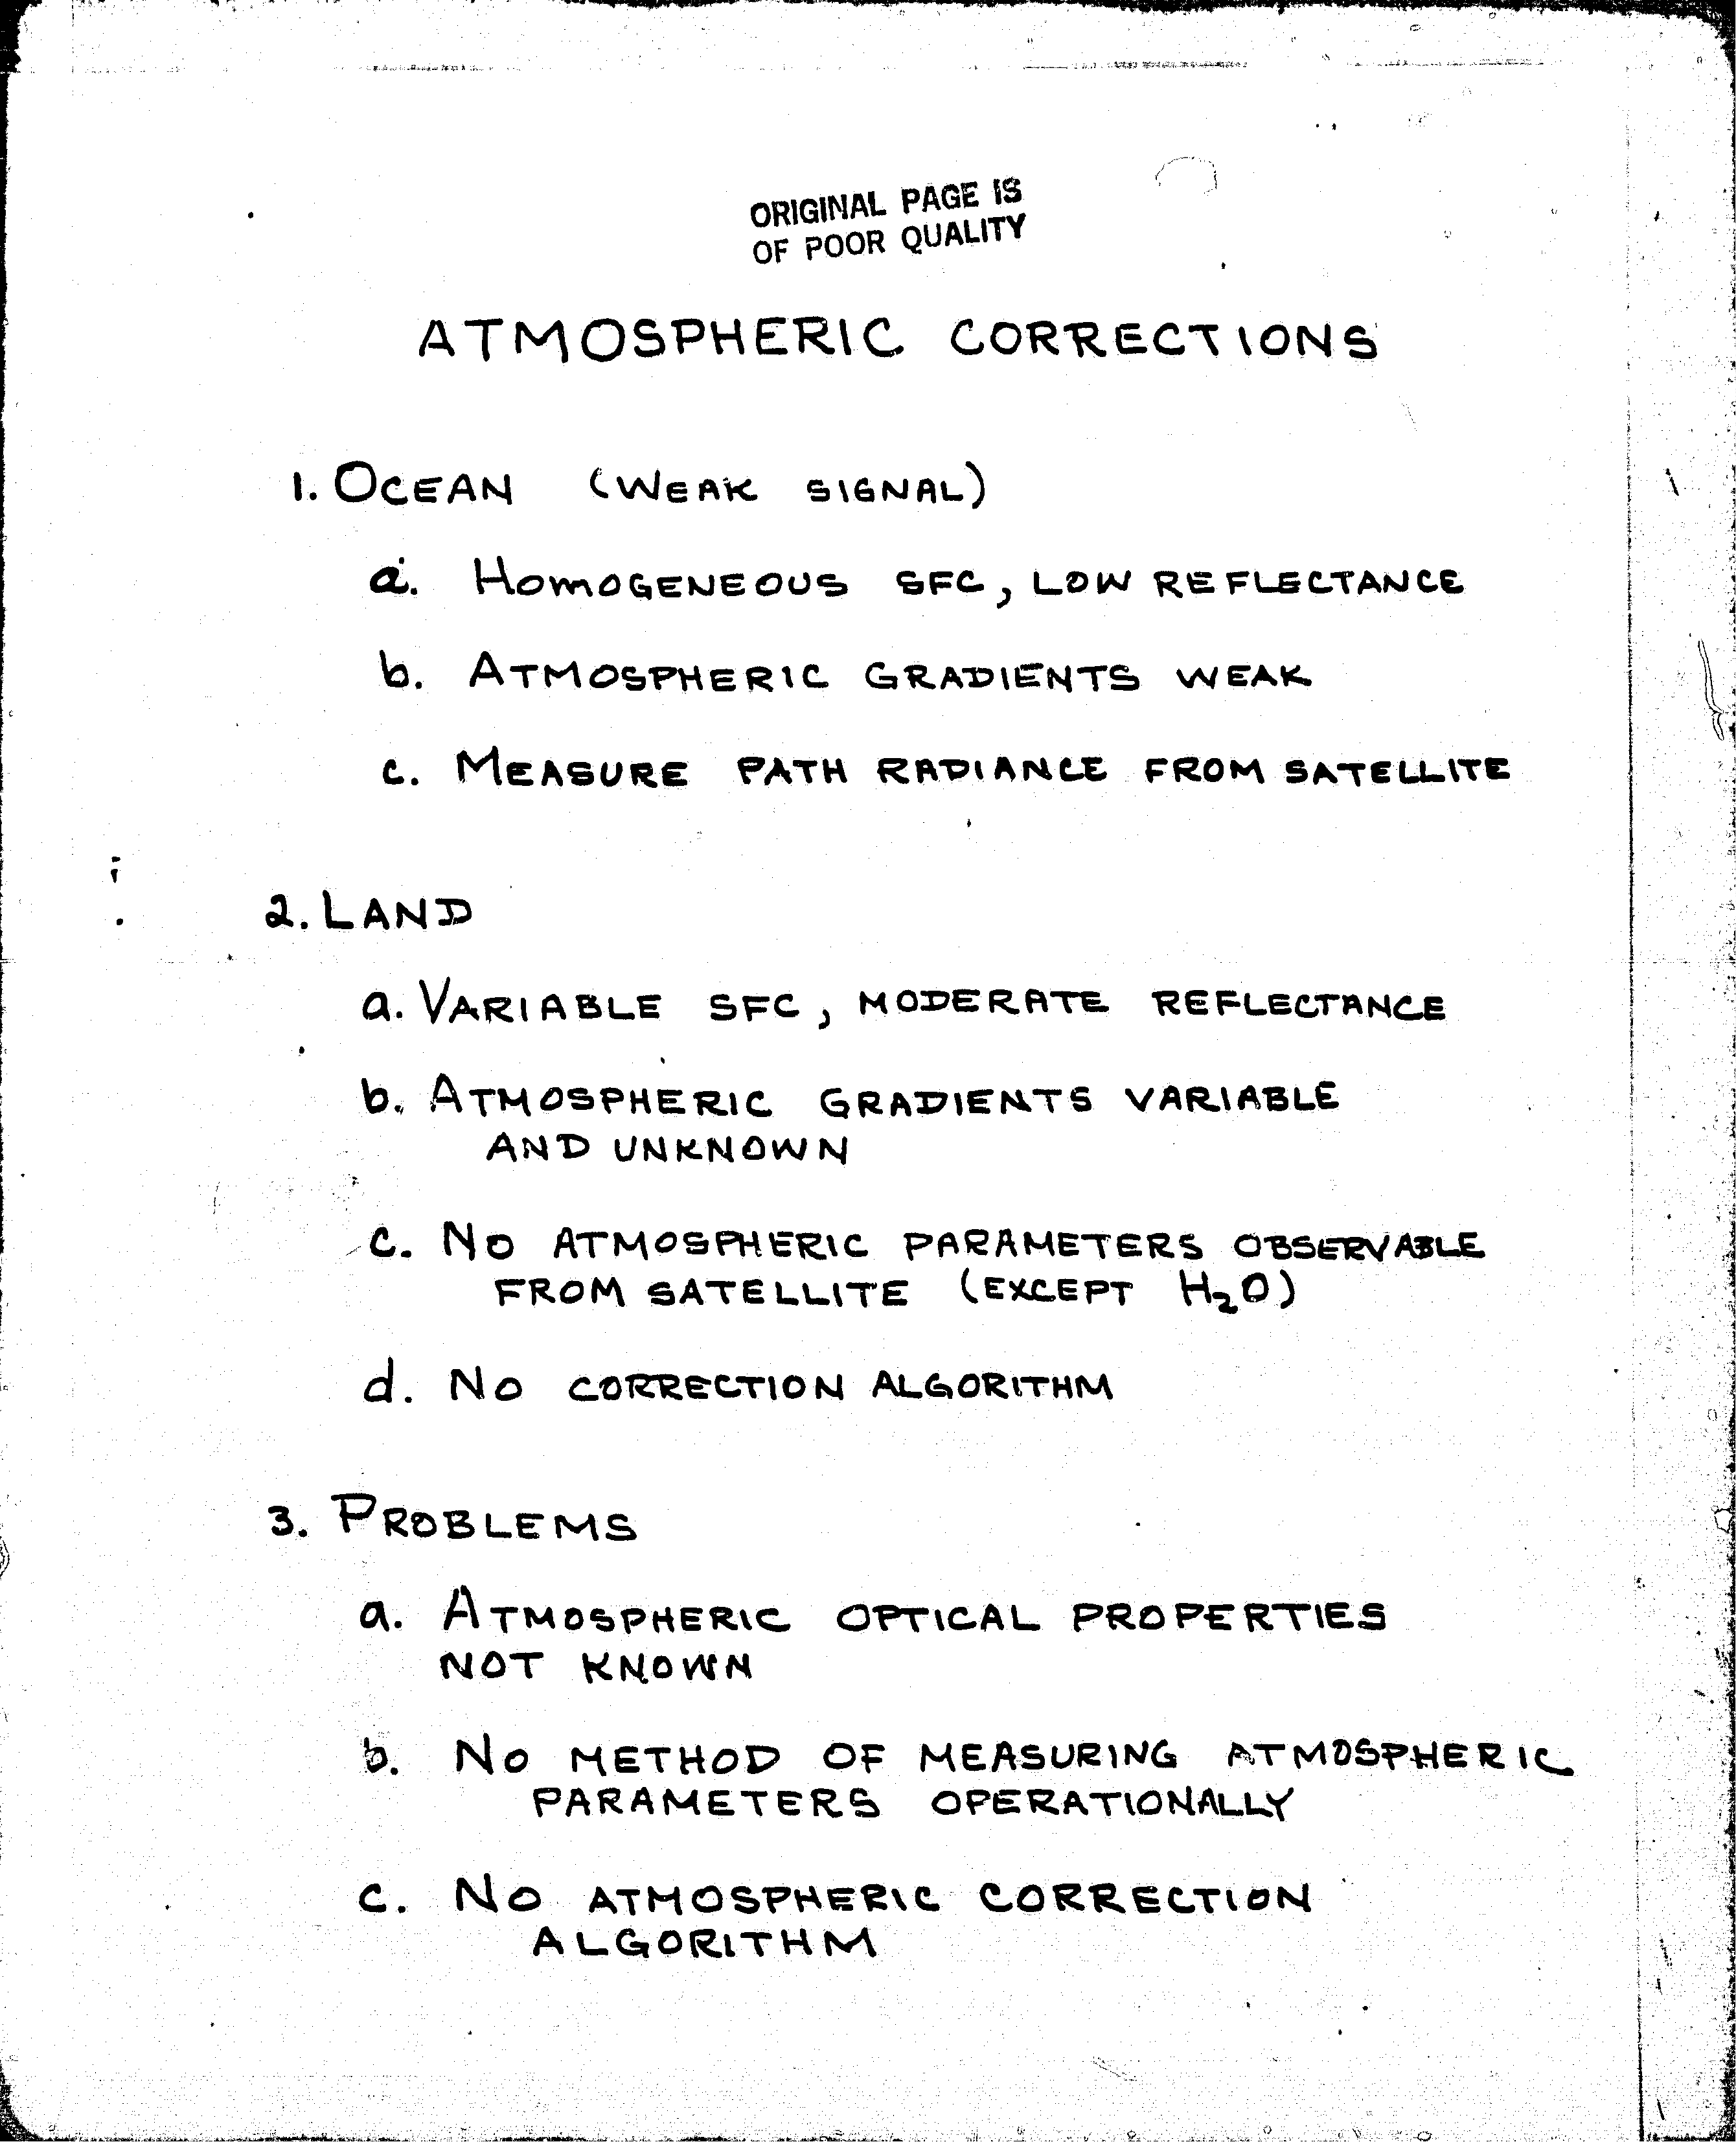 ORIGINAL PAGE IS
OF POOR QUALITY
ATMOSPHERIC CORRECTIONS
1. OCEAN (WEAK SIGNAL)
a. HOMOGENEOUS SFC, LOW REFLECTANCE
b. ATMOSPHERIC GRADIENTS WEAK
c. MEASURE PATH RADIANCE FROM SATELLITE
2. LAND
a. VARIABLE SFC, MODERATE REFLECTANCE
b. ATMOSPHERIC GRADIENTS VARIABLE
AND UNKNOWN
c. NO ATMOSPHERIC PARAMETERS OBSERVABLE
FROM SATELLITE (EXCEPT H₂O)
d. NO CORRECTION ALGORITHM
3. PROBLEMS
a. ATMOSPHERIC OPTICAL PROPERTIES
NOT KNOWN
b. NO METHOD OF MEASURING ATMOSPHERIC
PARAMETERS OPERATIONALLY
c. NO ATMOSPHERIC CORRECTION
ALGORITHM